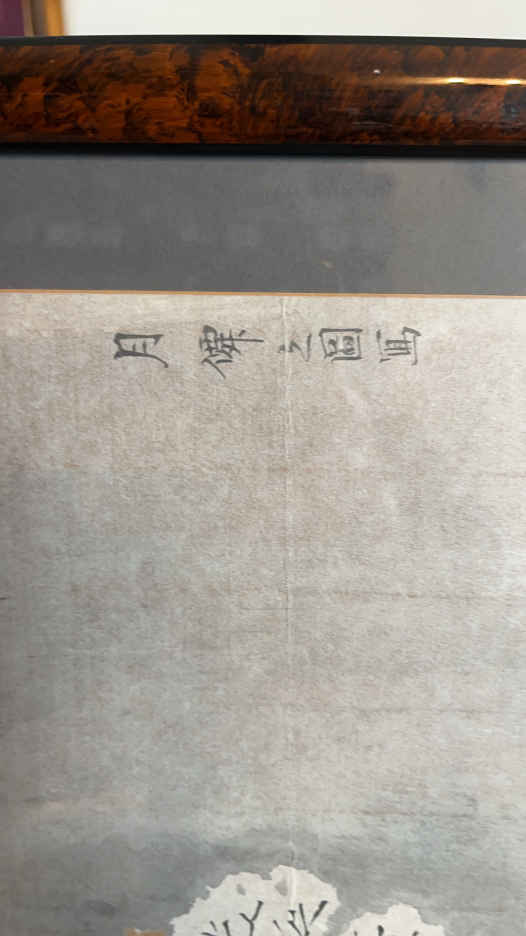 月僊之圖